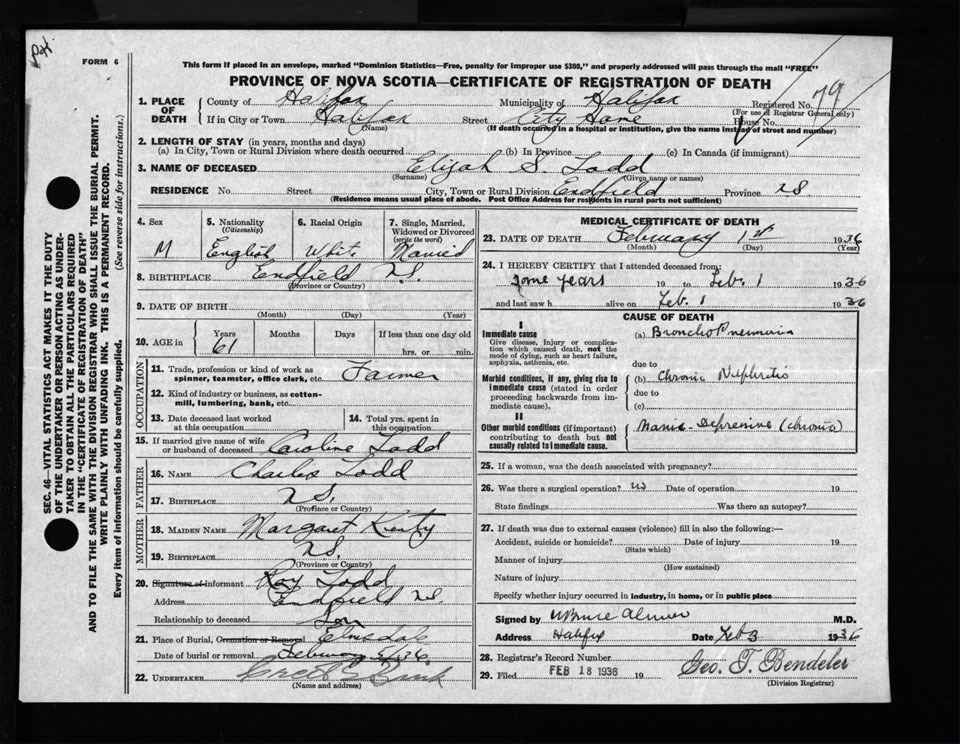 Pat.
FORM 6
This form if placed in an envelope, marked "Dominion Statistics—Free, penalty for improper use $300," and properly addressed will pass through the mail "FREE"
PROVINCE OF NOVA SCOTIA—CERTIFICATE OF REGISTRATION OF DEATH
79
1. PLACE OF DEATH
County of Halifax Municipality of Halifax Registered No.
(For use of Registrar General only)
If in City or Town Halifax Street City Home House No.
(Name) (If death occurred in a hospital or institution, give the name instead of street and number)
2. LENGTH OF STAY (in years, months and days)
(a) In City, Town or Rural Division where death occurred (b) In Province (c) In Canada (if immigrant)
3. NAME OF DECEASED Elijah S. Todd
(Surname) (Given name or names)
RESIDENCE No. Street City, Town or Rural Division Endfield Province NS
(Residence means usual place of abode. Post Office Address for residents in rural parts not sufficient)
4. Sex M
5. Nationality (Citizenship) English
6. Racial Origin White
7. Single, Married, Widowed or Divorced (write the word) Married
8. BIRTHPLACE Endfield N.S.
(Province or Country)
9. DATE OF BIRTH
(Month) (Day) (Year)
10. AGE in Years Months Days If less than one day old
61 hrs. or min.
OCCUPATION
11. Trade, profession or kind of work as spinner, teamster, office clerk, etc. Farmer
12. Kind of industry or business, as cotton-mill, lumbering, bank, etc.
13. Date deceased last worked at this occupation
14. Total yrs. spent in this occupation
15. If married give name of wife or husband of deceased Caroline Todd
FATHER
16. NAME Charles Todd
17. BIRTHPLACE N.S.
(Province or Country)
MOTHER
18. MAIDEN NAME Margaret
19. BIRTHPLACE N.S.
(Province or Country)
20. Signature of informant Roy Todd
Address Endfield N.S.
Relationship to deceased Son
21. Place of Burial, Cremation or Removal Elmsdale
Date of burial or removal February /36
22. UNDERTAKER
(Name and address)
MEDICAL CERTIFICATE OF DEATH
23. DATE OF DEATH February 1st 1936
(Month) (Day) (Year)
24. I HEREBY CERTIFY that I attended deceased from:
some years 19 to Feb. 1 1936
and last saw h alive on Feb. 1 1936
CAUSE OF DEATH
I
Immediate cause
Give disease, injury or complication which caused death, not the mode of dying, such as heart failure, asphyxia, asthenia, etc.
(a) Broncho Pneumonia
due to
Morbid conditions, if any, giving rise to immediate cause (stated in order proceeding backwards from immediate cause).
(b) Chronic Nephritis
due to
(c)
II
Other morbid conditions (if important) contributing to death but not causally related to immediate cause.
Manic-Depressive (chronic)
25. If a woman, was the death associated with pregnancy?
26. Was there a surgical operation? Date of operation 19
State findings Was there an autopsy?
27. If death was due to external causes (violence) fill in also the following:—
Accident, suicide or homicide? Date of injury 19
(State which)
Manner of injury
(How sustained)
Nature of injury
Specify whether injury occurred in industry, in home, or in public place
Signed by M.D.
Address Halifax Date Feb 3 1936
28. Registrar's Record Number
29. Filed FEB 18 1936 19 Geo. T. Bendeler
(Division Registrar)
SEC. 46—VITAL STATISTICS ACT MAKES IT THE DUTY
OF THE UNDERTAKER OR PERSON ACTING AS UNDER-
TAKER TO OBTAIN ALL THE PARTICULARS REQUIRED
IN THE "CERTIFICATE OF REGISTRATION OF DEATH"
AND TO FILE THE SAME WITH THE DIVISION REGISTRAR WHO SHALL ISSUE THE BURIAL PERMIT.
WRITE PLAINLY WITH UNFADING INK. THIS IS A PERMANENT RECORD.
Every item of information should be carefully supplied. (See reverse side for instructions.)